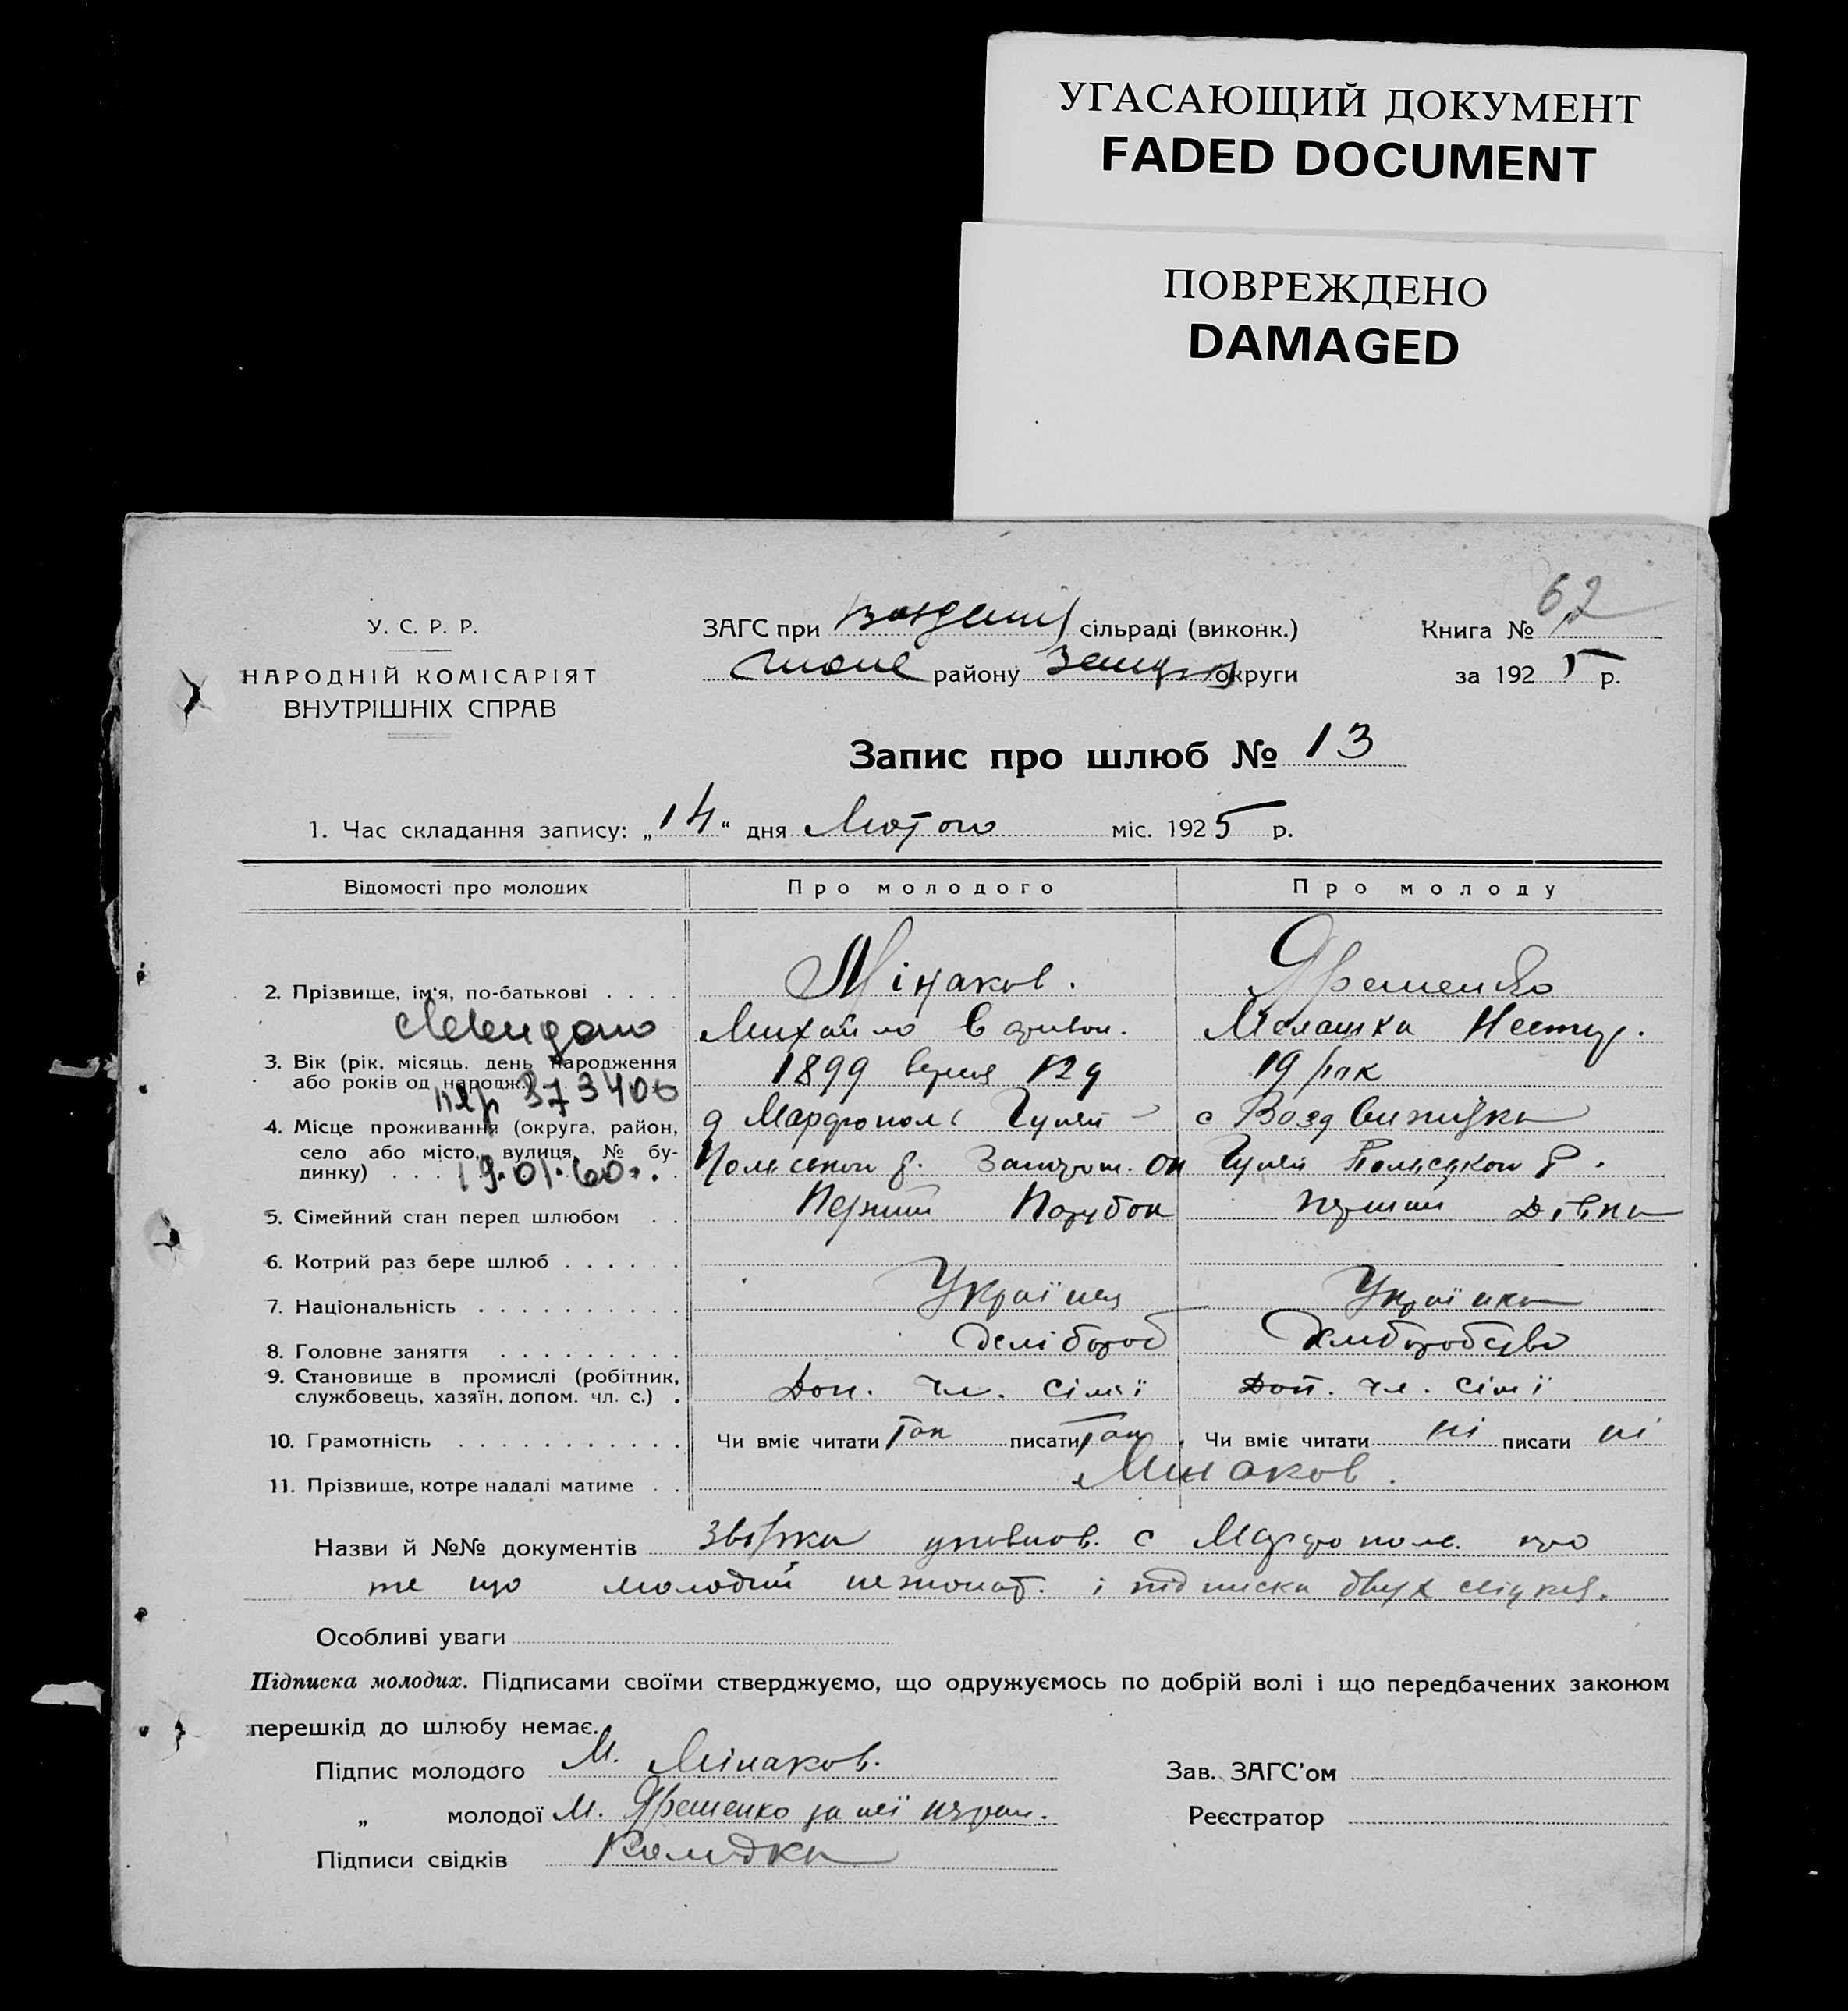 УГАСАЮЩИЙ ДОКУМЕНТ
FADED DOCUMENT
ПОВРЕЖДЕНО
DAMAGED
62
У. С. Р. Р.
НАРОДНІЙ КОМІСАРІЯТ
ВНУТРІШНІХ СПРАВ
ЗАГС при сільраді (виконк.)
району округи
Книга №
за 1925 р.
Запис про шлюб № 13
1. Час складання запису: „14“ дня Лютого міс. 1925 р.
Відомості про молодих Про молодого Про молоду
2. Прізвище, ім'я, по-батькові . . . . Мінаков. Ярешенко
Михайло Мелашка Нестер.
3. Вік (рік, місяць, день народження
або років од народж.) 1899 12 19 рок
873406
4. Місце проживання (округа, район, Марфополь Гуляй - с Воздвижівка
село або місто, вулиця, № бу-
динку) . . . Гуляй Р.
19.01.60г.
5. Сімейний стан перед шлюбом . . Перший Парубок перший Дівка
6. Котрий раз бере шлюб . . . . . .
7. Національність . . . . . . . . . . Українец Українка
8. Головне заняття . . . . . . . . . Хліборобство
9. Становище в промислі (робітник,
службовець, хазяїн, допом. чл. с.) . Доп. чл. сімї Доп. чл. сімї
10. Грамотність . . . . . . . . . . . Чи вміє читати Так писати Так. Чи вміє читати ні писати ні
11. Прізвище, котре надалі матиме . . Минаков.
Назви й №№ документів с Марфопол. про
те що молодий нежонат. і підписка двух свідків.
Особливі уваги
Підписка молодих. Підписами своїми стверджуємо, що одружуємось по добрій волі і що передбачених законом
перешкід до шлюбу немає.
Підпис молодого М. Мінаков. Зав. ЗАГС'ом
„ молодої М. Ярешенко за неї Реєстратор
Підписи свідків